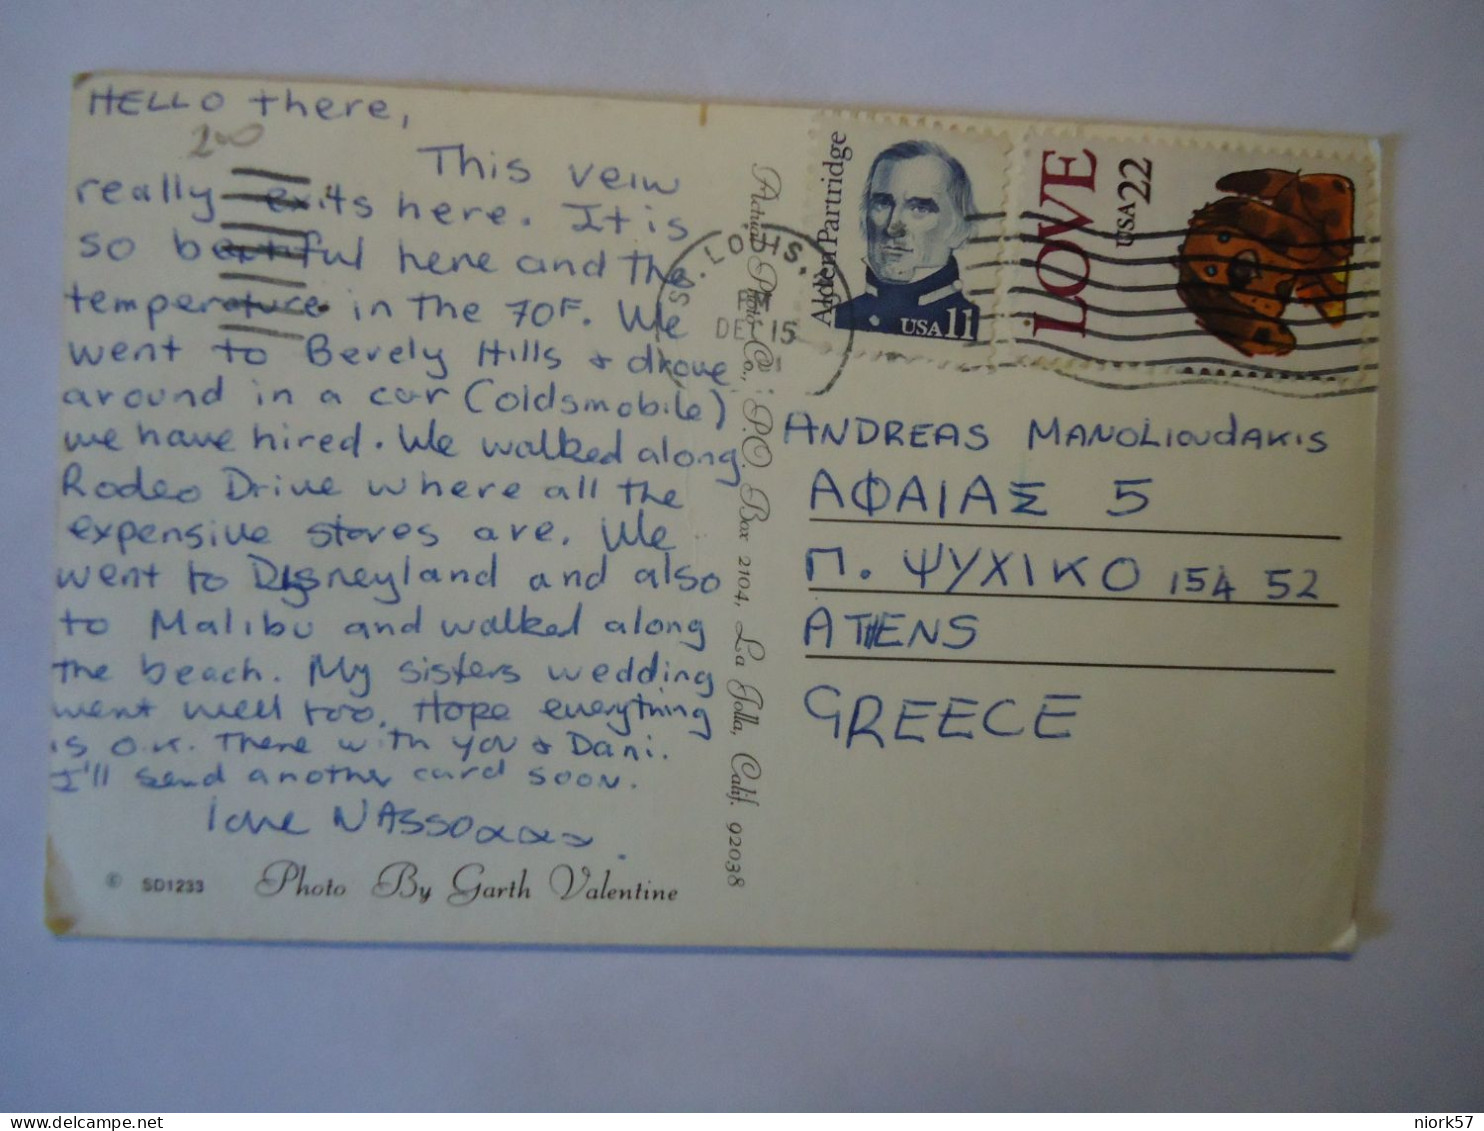 HELLO there,
200
This veiw
really exits here. It is
so beautiful here and the
temperature in the 70F. We
went to Bevely Hills + drove
around in a car (oldsmobile)
we have hired. We walked along
Rodeo Drive where all the
expensive stores are. We
went to Disneyland and also
to Malibu and walked along
the beach. My sisters wedding
went well too. Hope everything
is O.K. There with you + Dani.
I'll send another card soon.
love NASSOxxx.
© SD1233 Photo By Garth Valentine
Actual Photo Co., P.O. Box 2104, La Jolla, Calif. 92038
LO. HS.
PM
DE 15
Alden Partridge
USA 11
LOVE
USA 22
ANDREAS MANOLIOUDAKIS
ΑΦΑΙΑΣ 5
Π. ΨΥΧΙΚΟ 154 52
ATHENS
GREECE
niork57